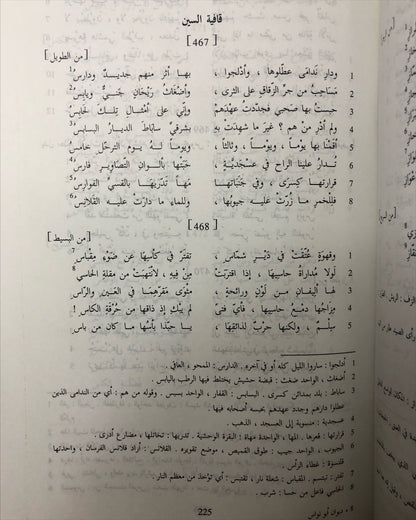 قافية السين
[467]
[من الطويل]
1 ودارِ نَدامَى عطّلوها، وأدلجوا، بها أثرٌ منهم جَديدٌ ودارسُ¹
2 مَساحبُ من جرّ الزّقاقِ على الثرى، وأضغاثُ ريْحانٍ جَنيٌّ ويابسُ²
3 حبستُ بها صَحبي فجدّدتُ عهدَهمْ وإنّي على أمْثالِ تلكَ لحابسُ
4 ولم أدْرِ من هم؟ غيرَ ما شهِدتْ به بشرقيّ ساباطَ الديارُ البسابسُ³
5 أقمْنا بها يوْماً، ويوْماً، وثالثاً، ويوماً لهُ يومُ الترحّلِ خامسُ
6 تُدارُ علينا الراحُ في عسْجَديّةٍ، حَبَتْها بألْوانِ التّصاويرِ فارسُ⁴
7 قرارتها كِسرَى، وفي جَنَباتِها مَهاً تدّريها بالقسيّ الفوارسُ⁵
8 فللخمرِ ما زُرّتْ عليهِ جيوبها، وللماءِ ما دارَتْ عليهِ القلانسُ⁶
[468]
[من البسيط]
1 وقهوةٍ عُتّقتْ في دَيْرِ شمّاسِ، تفتَرّ في كأسِها عن ضَوْءِ مِقْباسِ⁷
2 لولا مُداراةُ حاسيها، إذا اقترَبَتْ من فِيهِ، لانتهبَتْ من مقلةِ الحاسي⁸
3 لها أليفانِ من لوْنٍ ورائحةٍ، مثوى مقرّهما في العَينِ والرّاسِ
4 مِزاجُها دمْعُ حاسيها، فأيّ فتىً لم يبكِ إذ ذاقها من حُرْقةِ الكاسِ!
5 سِلْمٌ، ولكنها حرْبٌ لذائقِها، يا حبّذا بأسُها ما كان من باسِ
1 أدلجوا: ساروا الليل كله أو في آخره. الدارس: الممحو، العافي.
2 أضغاث، الواحد ضغث: قبضة حشيش يختلط فيها الرطب باليابس.
3 ساباط: بلد بمدائن كسرى. البسابس: القفار، الواحد بسبس. وقوله من هم: أي من الندامى الذين
عطلوا دارهم وجدد عهدهم بحبسه أصحابه فيها
4 عسجدية: منسوبة إلى العسجد، الذهب.
5 قرارتها: قعرها. المها، الواحدة مهاة: البقرة الوحشية. تدريها: تخاتلها، مضارع أدرى.
6 الجيوب، الواحد جيب: طوق القميص، موضع تقويره. القلانس: أراد قلانس الفرسان، واحدتها
قلنسوة: غطاء الرأس.
7 تفتر: تبسم. المقباس: شعلة نار، تقتبس: أي تؤخذ من معظم النار.
8 الحاسي فاعل من حسا: شرب.
225
8 • ديوان أبو نواس